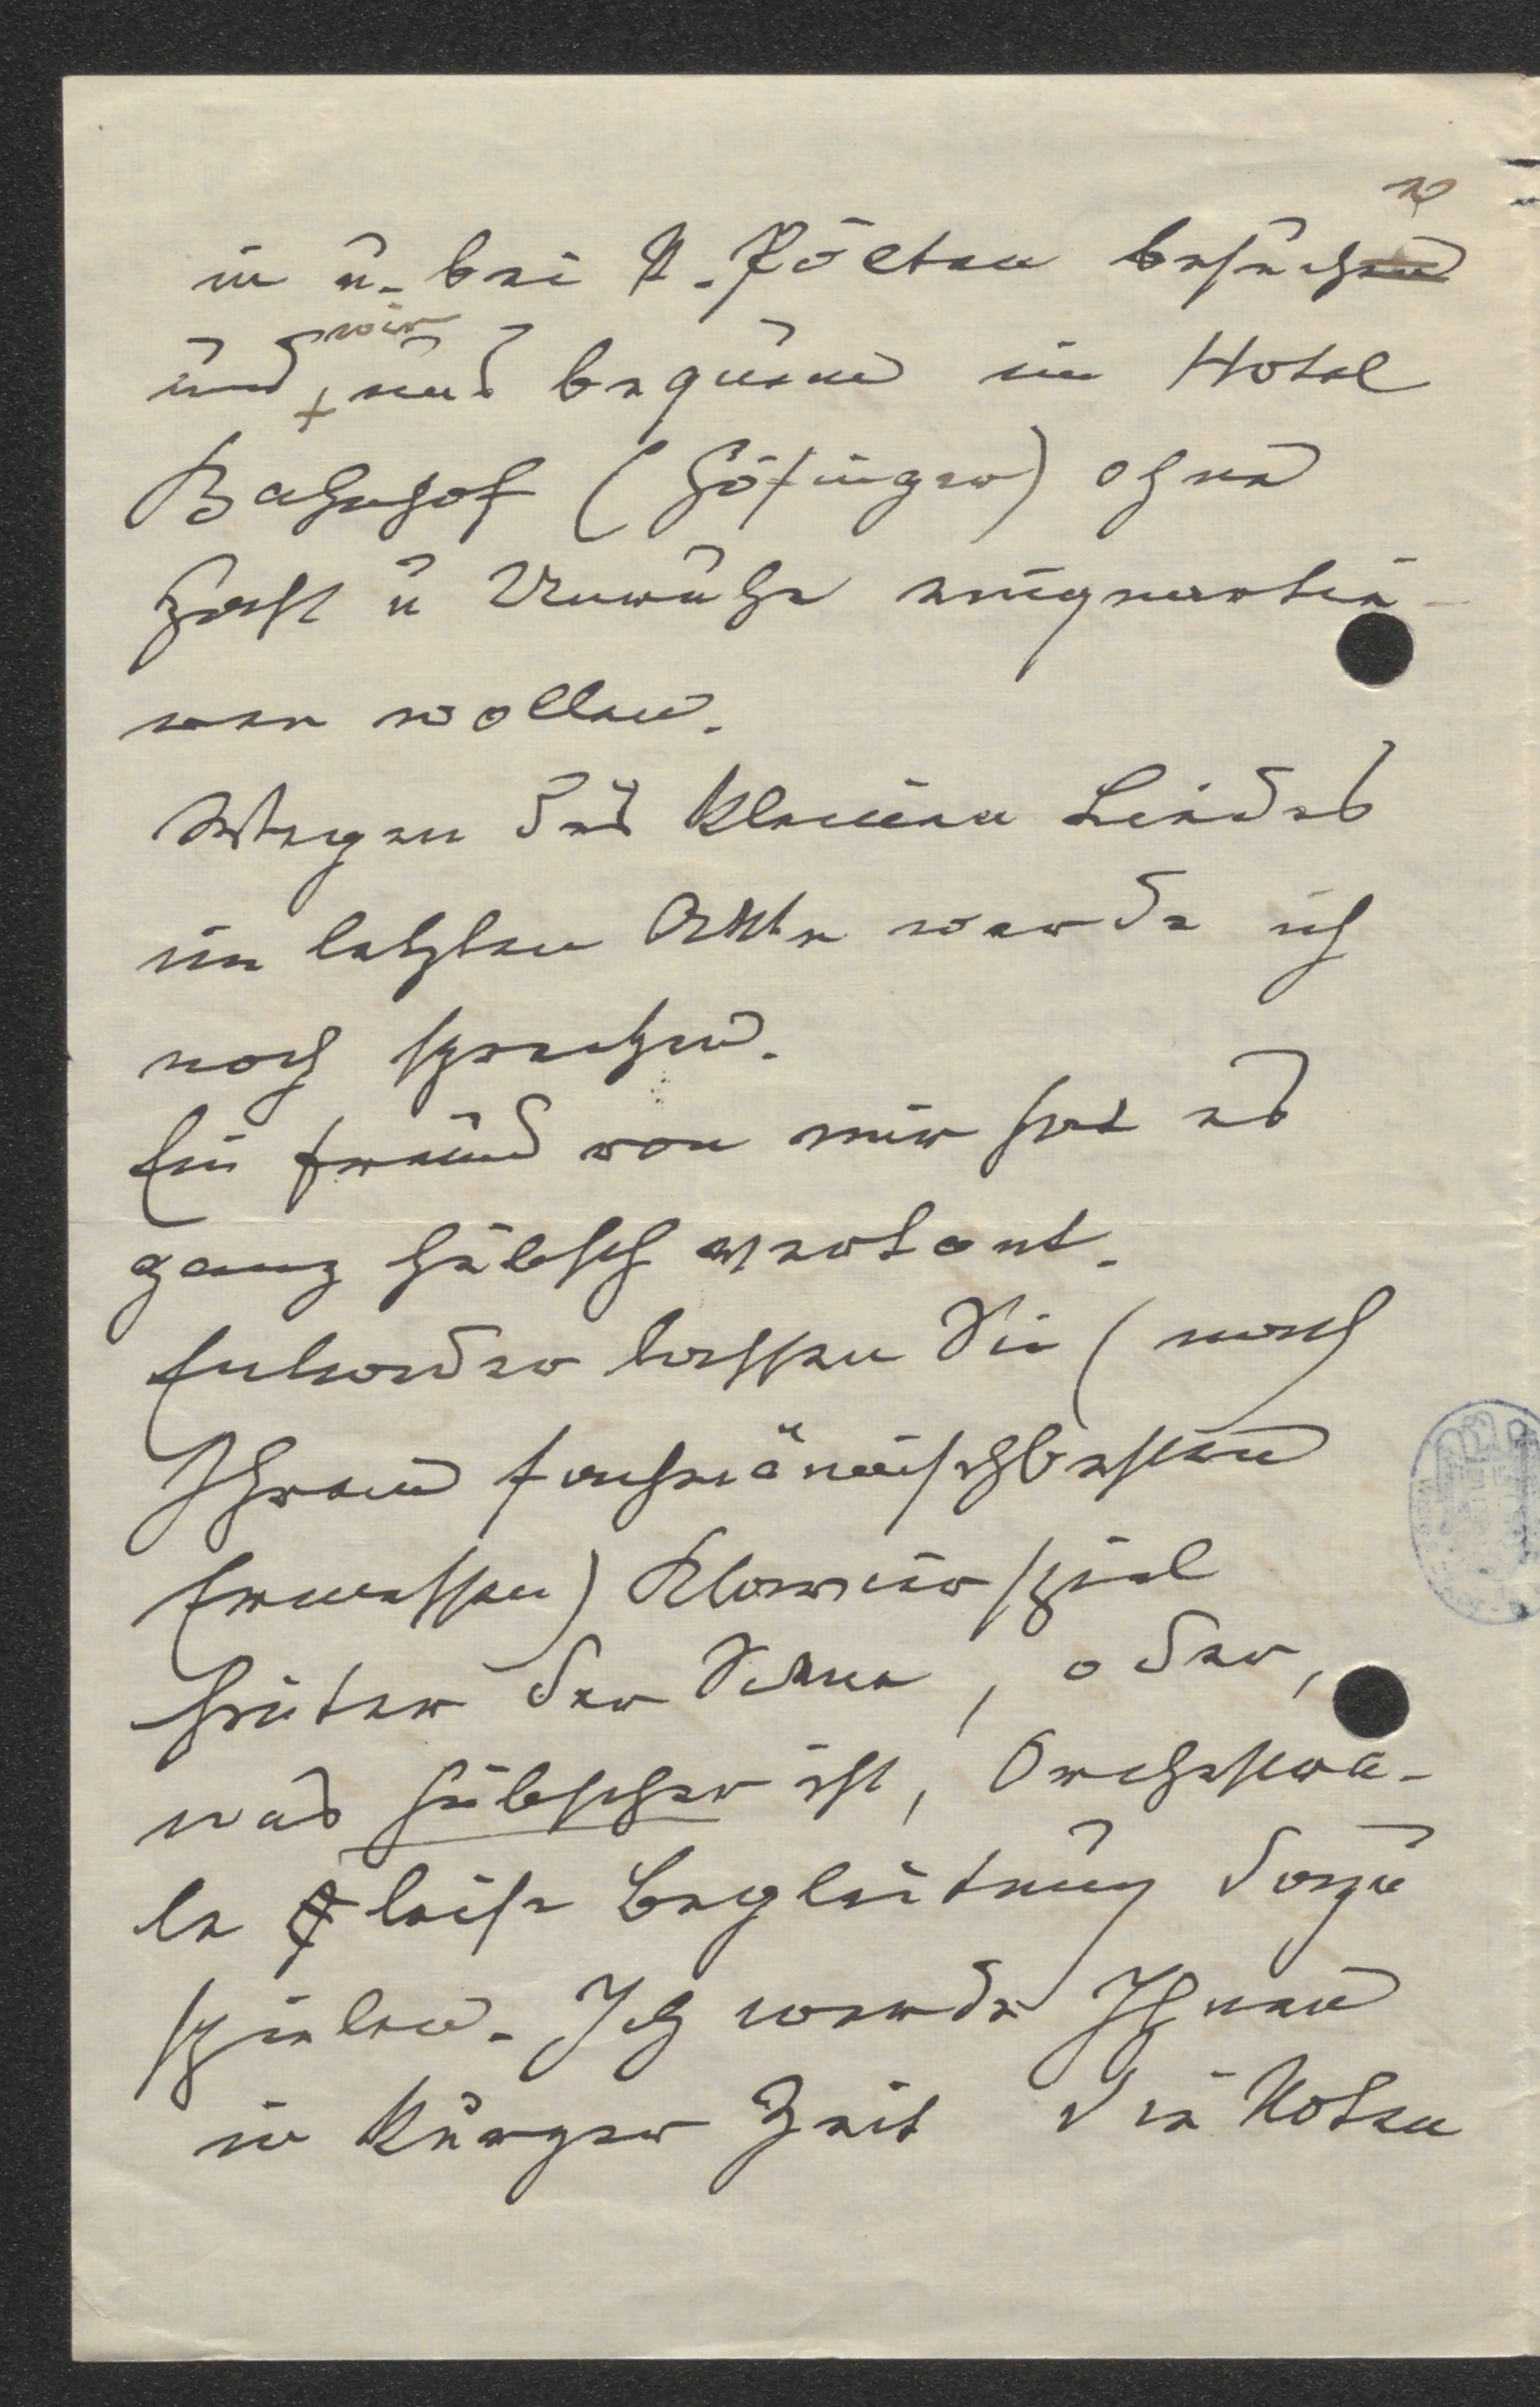 in u. bei St. Pölten besuche
und wir uns bequem im Hotel
Bahnhof (Höfinger) ohne
Hast u Unruhe einquartie-
ren wollen.
Wegen des kleinen Liedes
im letzten Akte werde ich
noch sprechen.
Ein Freund von mir hat es
ganz hübsch vertont.
Entweder lassen Sie (nach
Ihrem fachmännischbesten
Ermessen) Klavierspiel
hinter der Scene, oder,
was hübscher ist, Orchestra-
le leise Begleitung dazu
spielen. Ich werde Ihnen
in kurzer Zeit die Noten